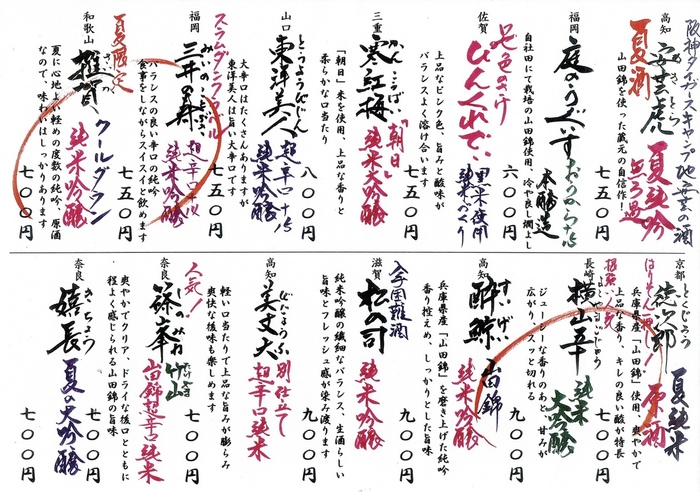 阪神タイガースキャンプ地安芸の酒
高知
安芸虎
あきとら
夏酒
夏純吟
無ろ過
山田錦を使った蔵元の自信作!
七五〇円
福岡
庭のうぐいす
おりがらみ
本醸造
自社田にて栽培の山田錦使用、冷や良し燗よし
六〇〇円
佐賀
ぴんくれでぃ
黒米使用
純米づくり
上品なピンク色、旨みと酸味が
バランスよく溶け合います
七五〇円
三重
寒紅梅
かんこうばい
「朝日」
純米吟醸
「朝日」米を使用、上品な香りと
柔らかな口当たり
八〇〇円
山口
東洋美人
とうようびじん
超辛口
純米吟醸
大辛口はたくさんありますが
東洋美人は旨い大辛口です
七五〇円
スラムダンクラベル
福岡
三井の寿
みいのことぶき
超辛口
純米吟醸
バランスの良い辛口の純吟
食事をしながらスイスイ飲めます
七五〇円
夏限定
和歌山
雑賀
さいか
クールダウン
純米吟醸
夏に心地よい軽めの度数の純吟、原酒
なので、味わいはしっかりあります
七〇〇円
京都
徳次郎
とくじろう
夏純米
原酒
兵庫県産「山田錦」使用、爽やかで
上品な香り、キレの良い酸が特長
七〇〇円
長崎
横山五十
よこやまごじゅう
純米
大吟醸
ジューシーな香りのあと、甘みが
広がり、スッと切れる
九〇〇円
高知
酔鯨
すいげい
山田錦
純米吟醸
兵庫県産「山田錦」を磨き上げた純吟
香り控えめ、しっかりとした旨味
九〇〇円
入手困難酒
滋賀
松の司
純米吟醸
純米吟醸の繊細なバランス、生酒らしい
旨味とフレッシュ感が染み渡ります
九〇〇円
高知
美丈夫
びじょうふ
別仕立て
超辛口純米
軽い口当たりで上品な旨みが膨らみ
爽快な後味も楽しめます
七〇〇円
人気!
奈良
篠峯
しのみね
竹山
山田錦超辛口純米
爽やかでクリア、ドライな後口とともに
程よく感じられる山田錦の旨味
七〇〇円
奈良
嬉長
きちょう
夏の大吟醸
七〇〇円